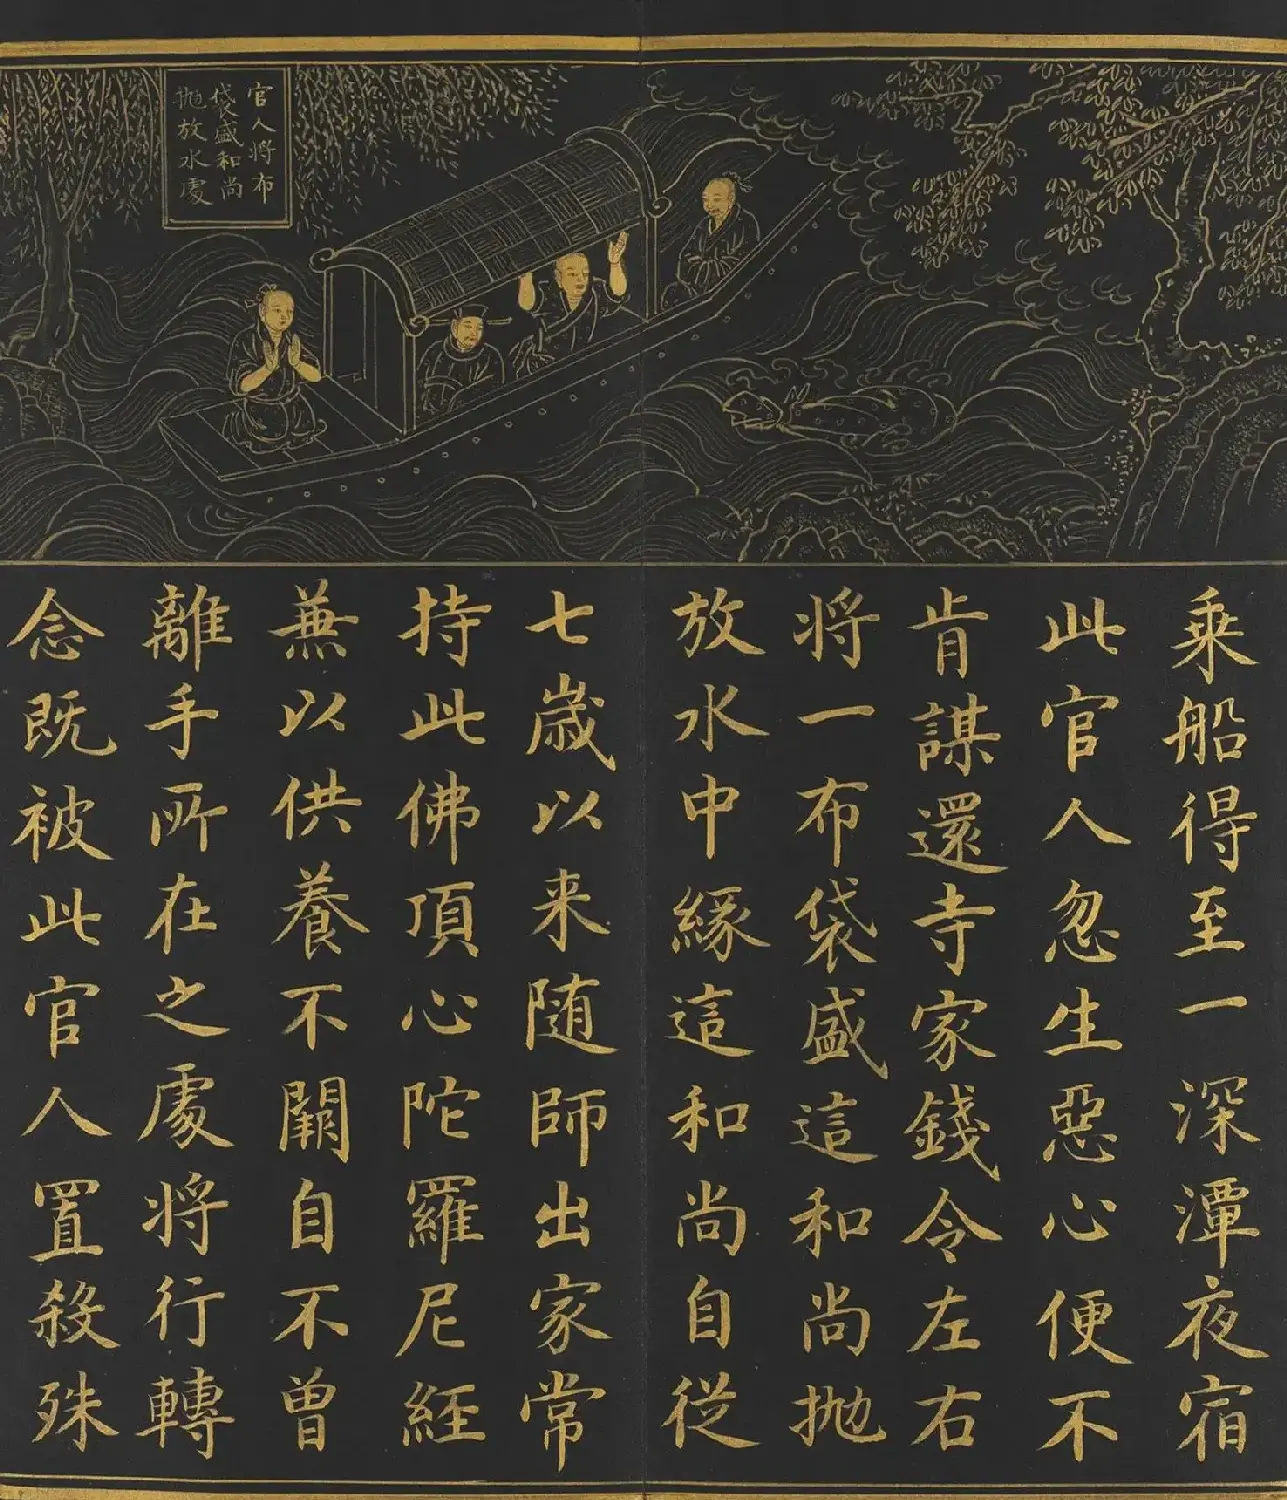 官人将布
袋盛和尚
抛放水處
乗船得至一深潭夜宿
此官人忽生惡心便不
肯謀還寺家錢令左右
将一布袋盛這和尚抛
放水中緣這和尚自従
七歳以来随師出家常
持此佛頂心陀羅尼経
兼以供養不闕自不曽
離手所在之處将行轉
念既被此官人置殺殊